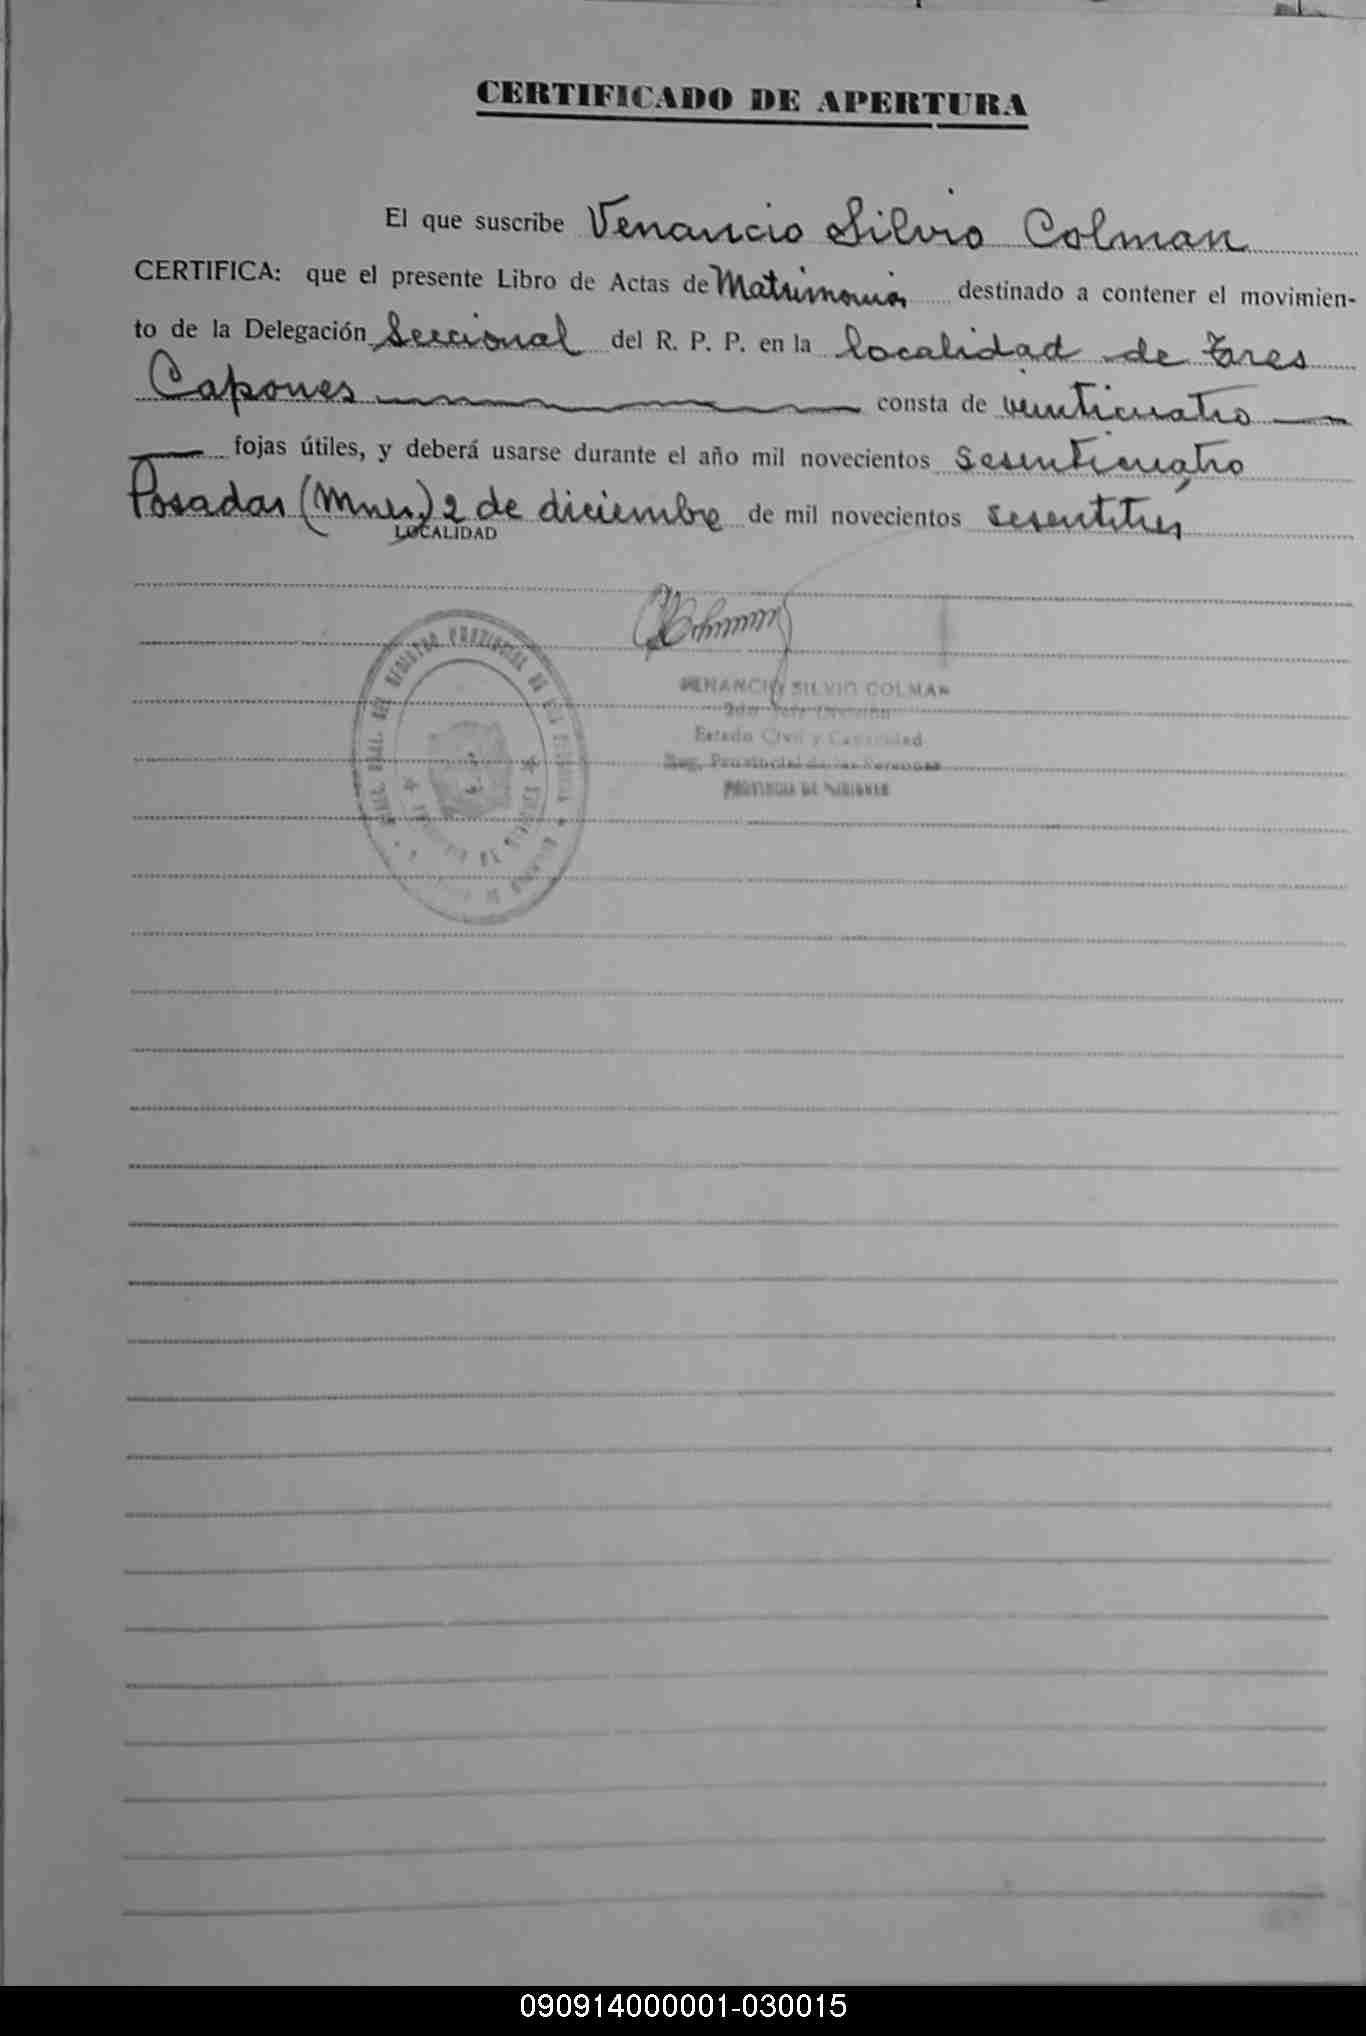 CERTIFICADO DE APERTURA
El que suscribe Venancio Silvio Colman
CERTIFICA: que el presente Libro de Actas de Matrimonios destinado a contener el movimien-
to de la Delegación Seccional del R. P. P. en la localidad de Tres
Capones consta de veinticuatro
fojas útiles, y deberá usarse durante el año mil novecientos sesenticuatro
Posadas (Mnes) 2 de diciembre de mil novecientos sesentitres
LOCALIDAD
VENANCIO SILVIO COLMAN
2do Jefe División
Estado Civil y Capacidad
Reg. Provincial de las Personas
PROVINCIA DE MISIONES
DEL REGISTRO PROVINCIAL DE LAS PERSONAS
090914000001-030015